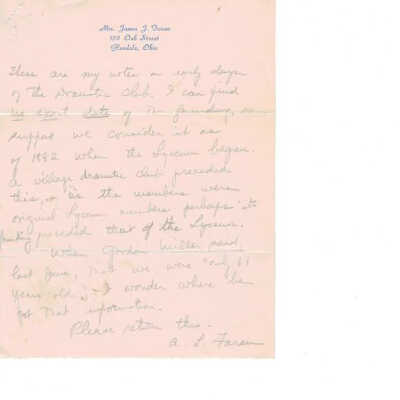 Mrs. James J. Faran
139 Oak Street
Glendale, Ohio
These are my notes on early days
of the Dramatic Club. I can find
no exact date of its founding, so
suppose we consider it as
of 1882 when the Lyceum began.
A village dramatic club preceded
this, as the members were
original Lyceum members perhaps its
founding preceded that of the Lyceum.
When Gordon Miller said,
last June, that we were "only 61
years old", I wonder where he
got that information.
Please return this.
A. L. Faran